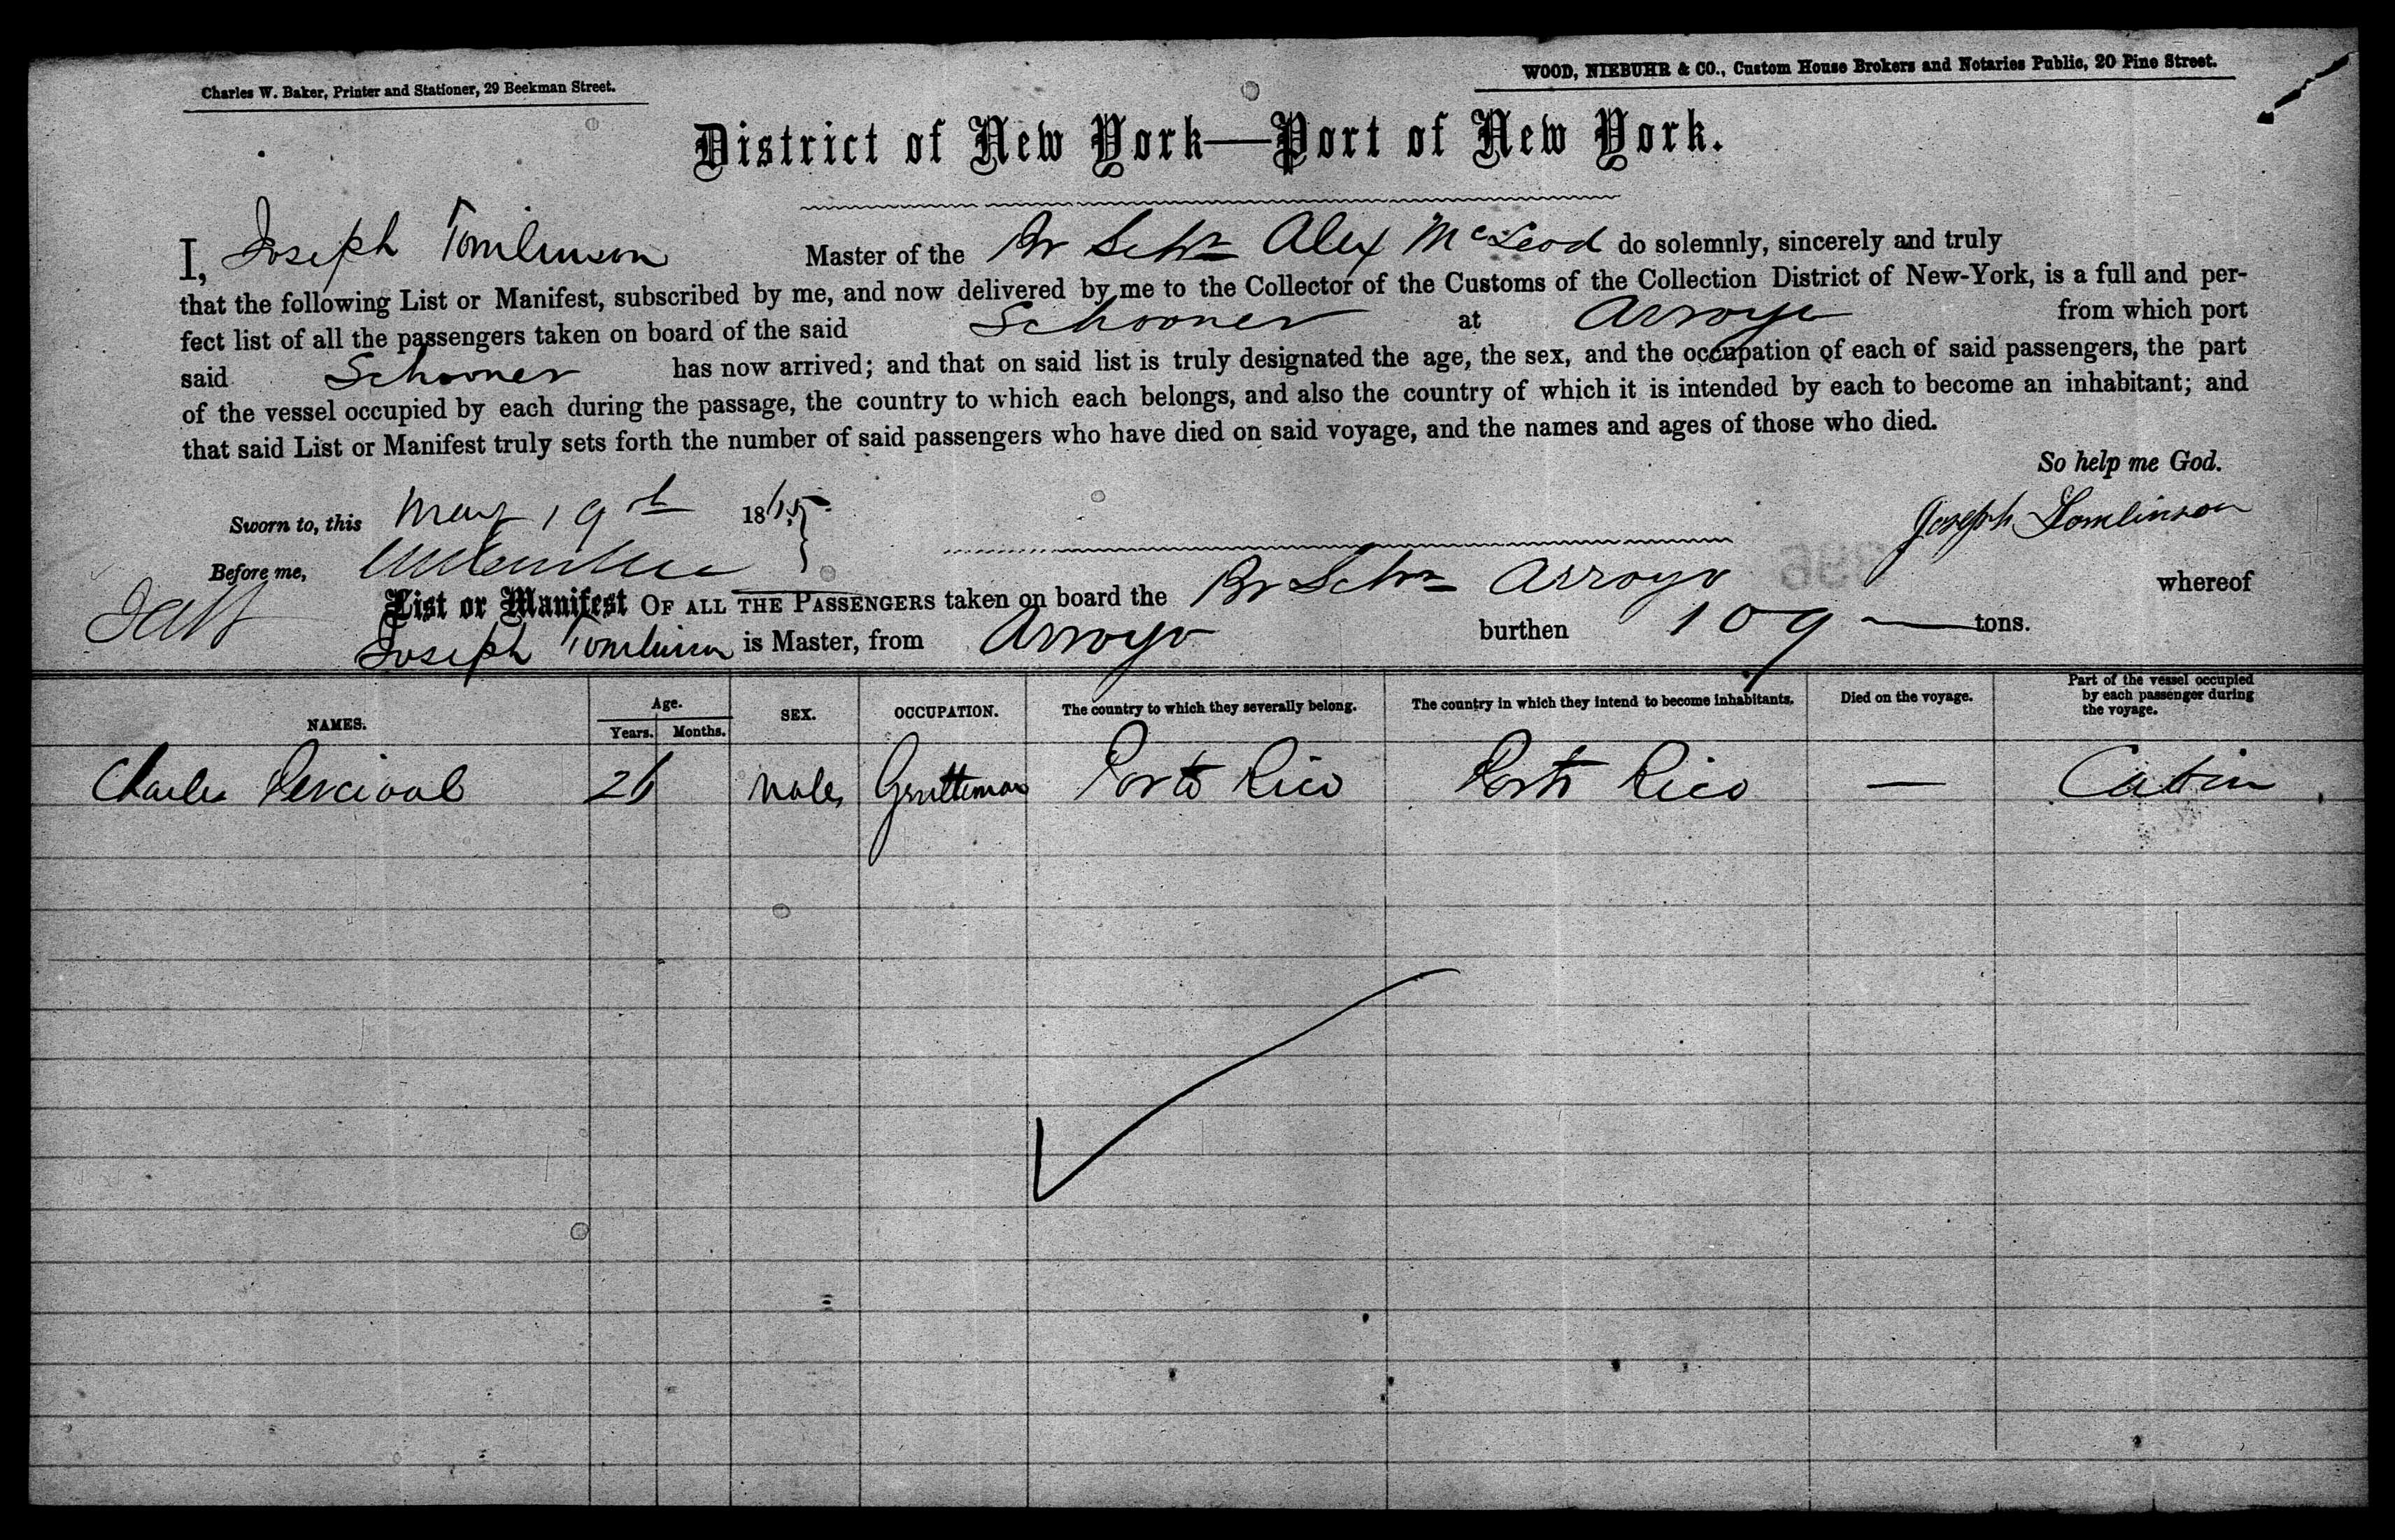 Charles W. Baker, Printer and Stationer, 29 Beekman Street.
WOOD, NIEBUHR & CO., Custom House Brokers and Notaries Public, 20 Pine Street.
District of New York—Port of New York.
I, Joseph Tomlinson Master of the Br Schr Alex McLeod do solemnly, sincerely and truly
that the following List or Manifest, subscribed by me, and now delivered by me to the Collector of the Customs of the Collection District of New-York, is a full and per-
fect list of all the passengers taken on board of the said Schooner at Arroyo from which port
said Schooner has now arrived; and that on said list is truly designated the age, the sex, and the occupation of each of said passengers, the part
of the vessel occupied by each during the passage, the country to which each belongs, and also the country of which it is intended by each to become an inhabitant; and
that said List or Manifest truly sets forth the number of said passengers who have died on said voyage, and the names and ages of those who died.
So help me God.
Sworn to, this May 19th 1865
Joseph Tomlinson
Before me,
List or Manifest OF ALL THE PASSENGERS taken on board the Br Schr Arroyo whereof
Joseph Tomlinson is Master, from Arroyo burthen 109 tons.
NAMES. Age. Years. Months. SEX. OCCUPATION. The country to which they severally belong. The country in which they intend to become inhabitants. Died on the voyage. Part of the vessel occupied by each passenger during the voyage.
Charles Percival 26 Male Gentleman Porto Rico Porto Rico — Cabin